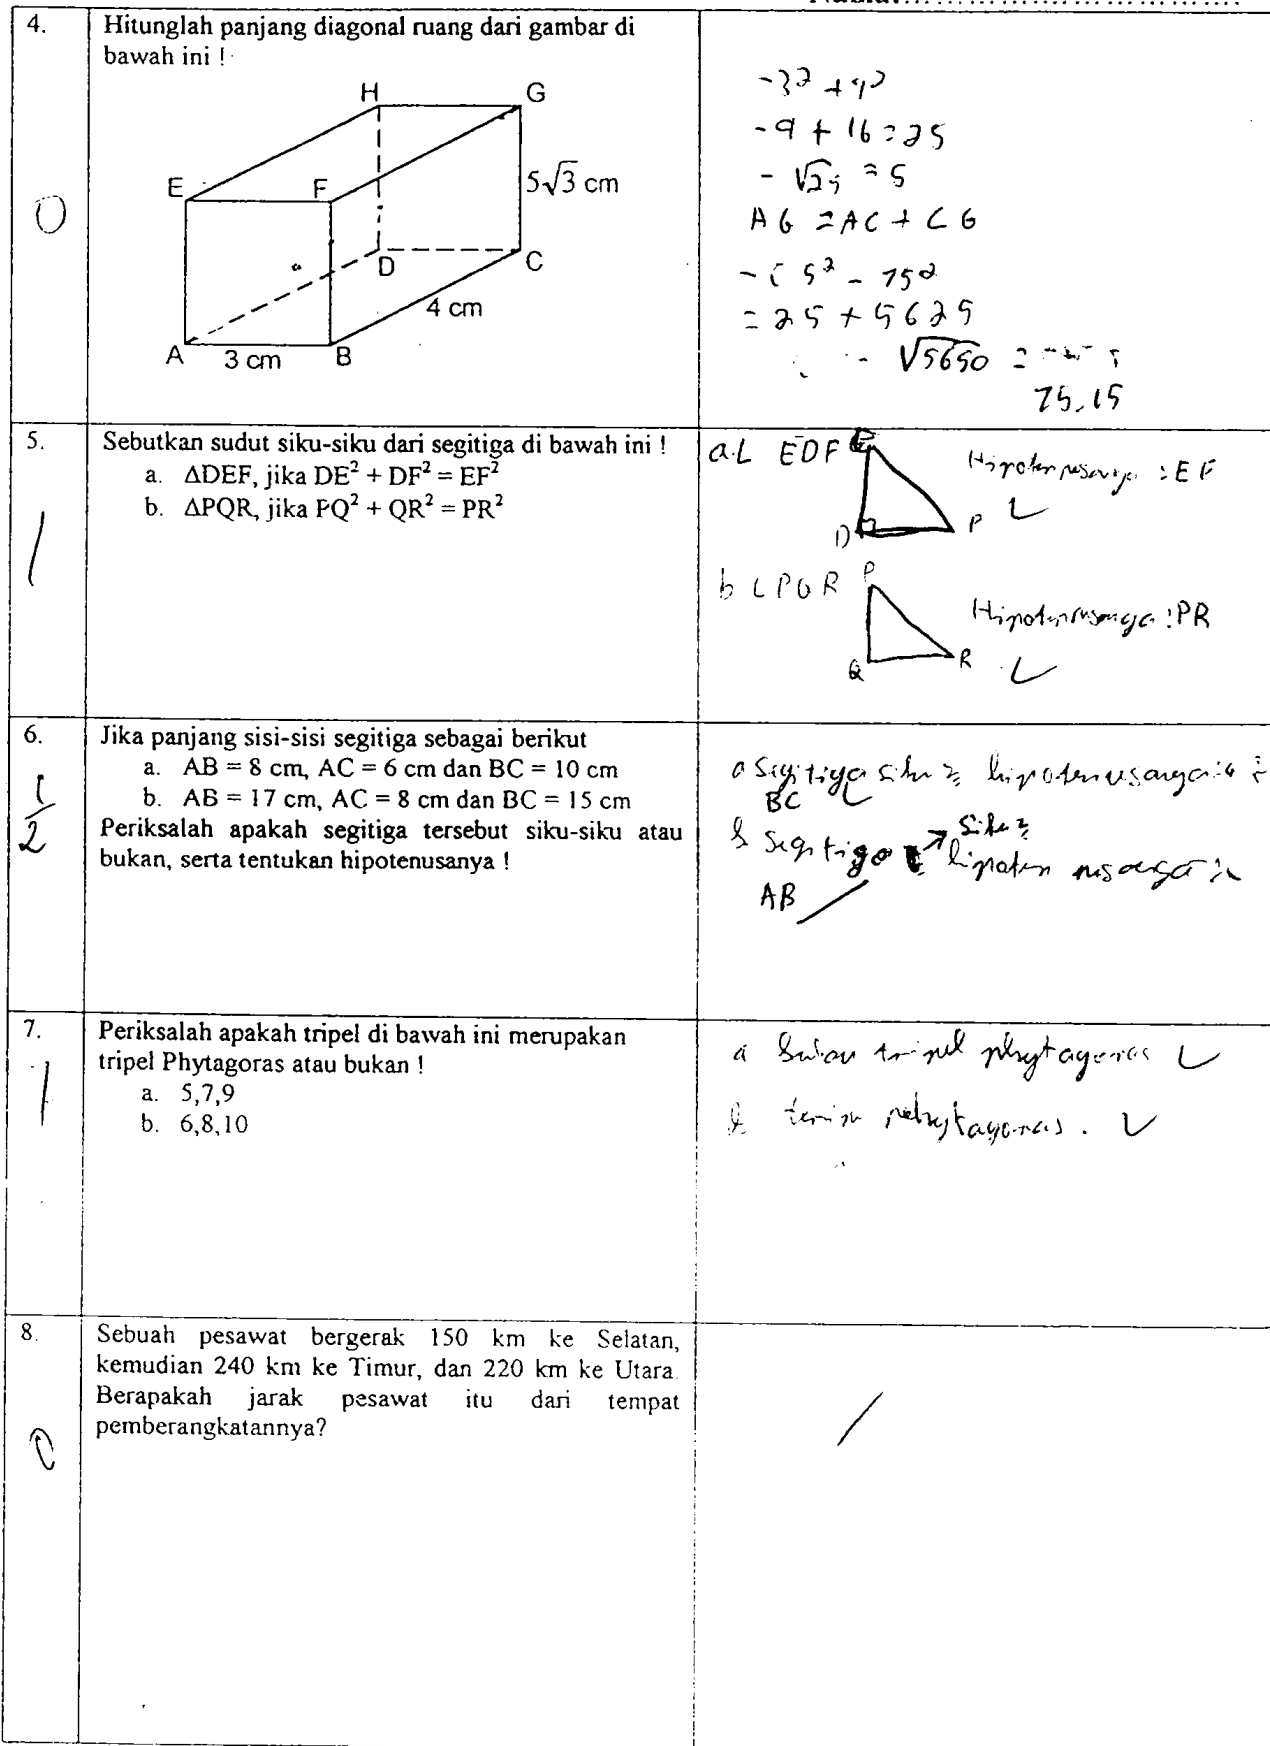 4.
Hitunglah panjang diagonal ruang dari gambar di
bawah ini !
H
G
E
F
5√3 cm
D
C
4 cm
A
3 cm
B
0
-3² + 4²
- 9 + 16 = 25
- √25 = 5
AG = AC + CG
5² - 75²
= 25 + 5625
√5650 =
75,15
5.
Sebutkan sudut siku-siku dari segitiga di bawah ini !
a. ΔDEF, jika DE² + DF² = EF²
b. ΔPQR, jika PQ² + QR² = PR²
1
a. L EDF
E
D
F
Hipotenusanya : EF
b L PQR
P
Q
R
Hipotenusanya : PR
6.
Jika panjang sisi-sisi segitiga sebagai berikut
a. AB = 8 cm, AC = 6 cm dan BC = 10 cm
b. AB = 17 cm, AC = 8 cm dan BC = 15 cm
Periksalah apakah segitiga tersebut siku-siku atau
bukan, serta tentukan hipotenusanya !
1/2
a Segitiga siku 2 hipotenusanya :
BC
b Segitiga siku 2 hipotenusanya :
AB
7.
Periksalah apakah tripel di bawah ini merupakan
tripel Phytagoras atau bukan !
a. 5,7,9
b. 6,8,10
1
a bukan tripel phytagoras
b
8.
Sebuah pesawat bergerak 150 km ke Selatan,
kemudian 240 km ke Timur, dan 220 km ke Utara.
Berapakah jarak pesawat itu dari tempat
pemberangkatannya?
0